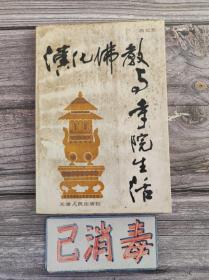 漢化佛教
与寺院生活
天津人民出版社
已消毒